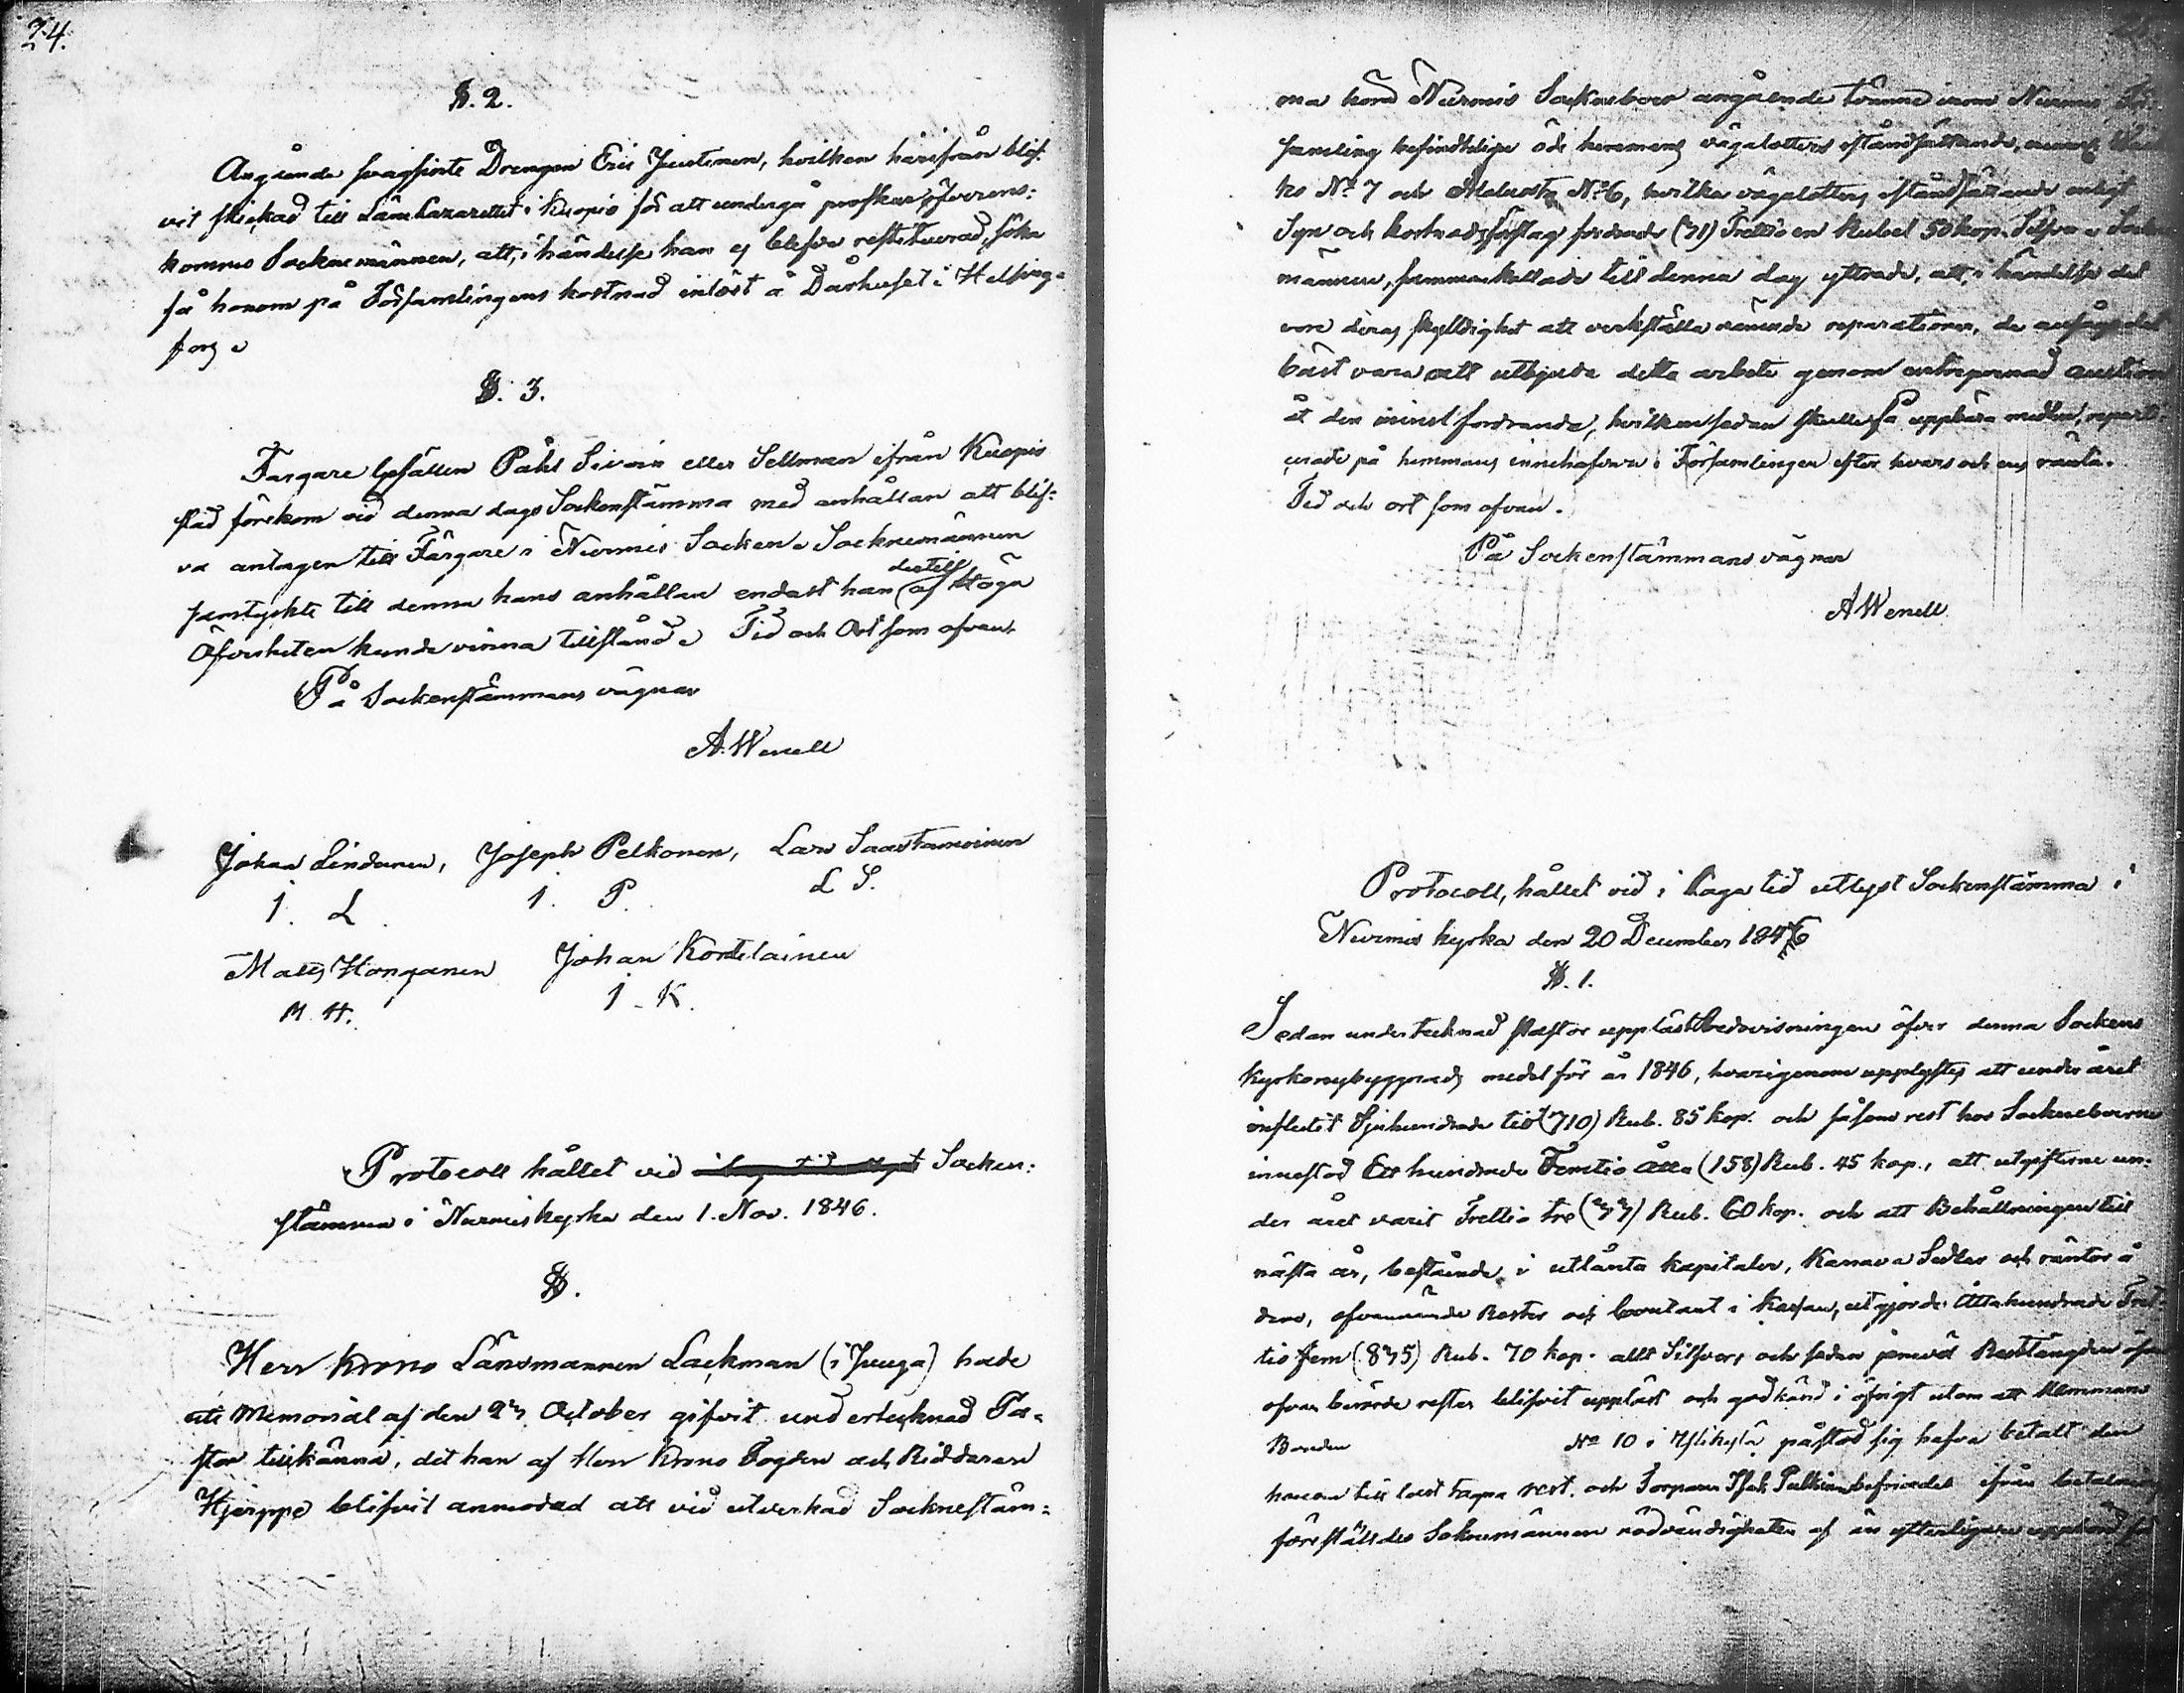 24.
§. 2.
Angående svagsinte Drengen Eric Juutinen, hvilken härifrån blif-
vit skickad till Läns Lazarettet i Kuopio för att undergå profkur, öfverens:
kommo Socknemännen, att, i händelse han ej blefve restituerad, söka
få honom på Församlingens kostnad intöst å Dårhuset i Helsing=
fors
§. 3.
Färgare Gesällen Påhl Sivoin eller Sellman ifrån Kuopio
stad förekom vid denna dags Sockenstämma med anhållan att blif:
va antagen till Färgare i Nurmis Socken. Socknemännen
samtyckte till denna hans anhållan endast han dertill af Höga
Öfverheten kunde vinna tillstånd. Tid och Ort som ofvan.
På Sockenstämmans vägnar
A. Wenell
Johan Lindunen, Joseph Pelkonen, Lars Saastamoinen
J. L. J. P. L S.
Matts Honganen Johan Kortelainen
M. H. J. K.
Protocoll hållet vid i laga tid utlyst Socken:
stämma i Nurmis kyrka den 1. Nov. 1846.
§.
Herr Krono Länsmannen Lackman (i Juuga) hade
uti Memorial af den 23 October gifvit undertecknad Pa=
stor tillkänna, det han af Herr Krono Fogden och Riddaren
Hjerppe blifvit anmodad att vid utverkad Socknestäm:
ma höra Nurmis Sockneboer angående tvänne inom Nurmis För-
samling befindtlige öde hemmans vägalotters iståndsättande,
ko No 7 och No 6, hvilka vägalotters iståndsättande enligt
Syn och kostnadsförslag fordrade (31) Trettio en Rubel 50 kop. Silfver. Sockne
männen, sammankallade till denna dag yttrade, att, i händelse det
vore deras skylldighet att verkställa nämnde reparationer, de ansågo det
bäst vara att utbjuda detta arbete genom entreprenad auction
åt den minst fordrande, hvilken sedan skulle få uppbära medlen, reparti-
erade på hemmans innehafvare i Församlingen efter hvars och ens ränta.
Tid och ort som ofvan.
På Sockenstämmans vägnar
A Wenell
Protocoll, hållet vid i laga tid utlyst Sockenstämma i
Nurmis kyrka den 20 December 1846
§. 1.
Sedan undertecknad Pastor uppläst Redovisningen öfver denna Sockens
kyrkonybyggnads medel för år 1846, hvarigenom upplystes att under året
influtit Sjuhundrade tio (710) Rub. 85 kop. och såsom rest hos Sockneboerne
innestod Ett hundrade Femtio Åtta (158) Rub. 45 kop., att utgifterne un:
der året varit Trettio tre (33) Rub. 60 kop. och att Behållningen till
nästa år, bestående i utlånta kapitaler, Kanava Sedlar och räntor å
dem, ofvannämnde Rester och Contant i kassan, utgjorde Åttahundrade Tret-
tio fem (835) Rub. 70 kop. allt Silfver; och sedan jemväl Restlängden öfver
ofvan berörde rester blifvit uppläst och godkänd i öfrigt utom att Hemmans
Bonden No 10 i Ylikylä påstod sig hafva betalt den
honom till last tagna rest. och Torparen Isak befriades ifrån betalning
föreställdes Soknemännen nödvändigheten af än ytterligare uppbörd